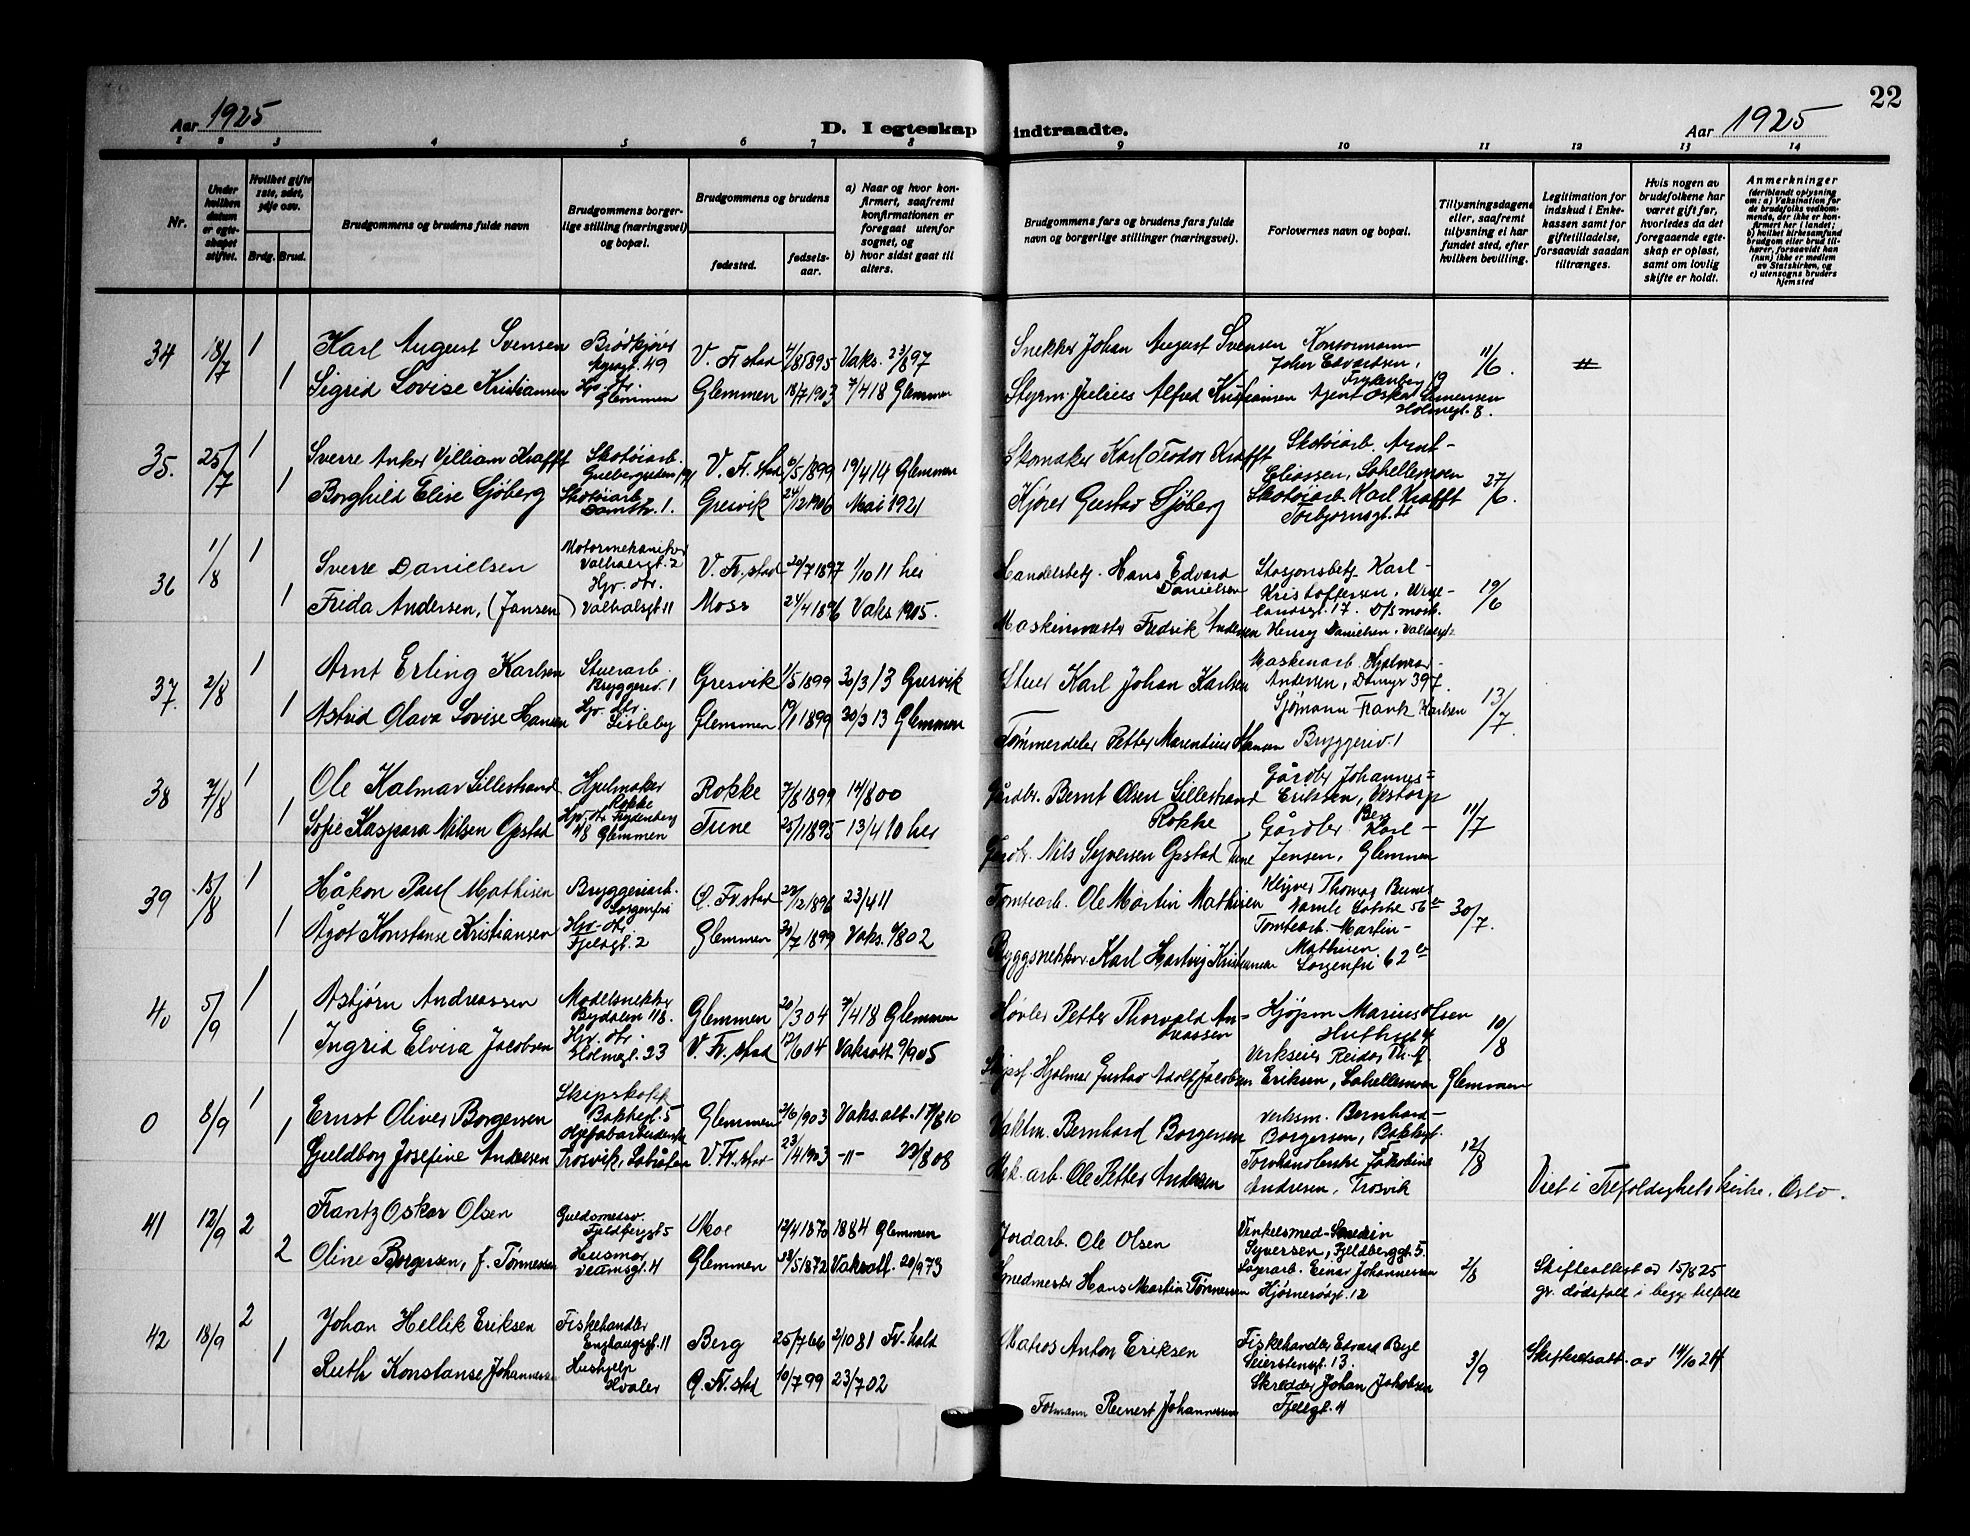 22
Aar 1925
D. I egteskap indtraadte.
Aar 1925
1 2 3 4 5 6 7 8 9 10 11 12 13 14
Nr.
Under hvilken datum er egteskapet stiftet.
Hvilket gifte 1ste, 2det, 3dje osv.
Brdg. Brud.
Brudgommens og brudens fulde navn
Brudgommens borgerlige stilling (næringsvei) og bopæl.
Brudgommens og brudens
fødested.
fødselsaar.
a) Naar og hvor konfirmert, saafremt konfirmationen er foregaat utenfor sognet, og
b) hvor sidst gaat til alters.
Brudgommens fars og brudens fars fulde navn og borgerlige stillinger (næringsvei).
Forlovernes navn og bopæl.
Tillysningsdagene eller, saafremt tillysning ei har fundet sted, efter hvilken bevilling.
Legitimation for indskud i Enkekassen samt for giftetilladelse, forsaavidt saadan tiltrænges.
Hvis nogen av brudefolkene har været gift før, hvorledes da det foregaaende egteskap er opløst, samt om lovlig skifte er holdt.
Anmerkninger
(deriblandt oplysning om: a) Vaksination for de brudefolks vedkommende, der ikke er konfirmert her i landet;
b) hvilket kirkesamfund brudgom eller brud tilhører, forsaavidt han (hun) ikke er medlem av Statskirken, og
c) utensogns bruders hjemsted
34 18/7 1 Karl August Svensen Brødkjører 49 V. Fr.stad 4/8 1895 Vaks. 23/8 97 Snekker Johan August Svensen John Edvardsen, 11/6.
1 Sigrid Lovise Kristiansen Hv. dtr. Glemmen Glemmen 18/7 1903 7/4 18 Glemmen Styrm. Julius Alfred Kristiansen Agent Oskar Holmegt. 8.
35. 25/7 1 Sverre Anker Villiam Krafft Skotøiarb. V. Fr.stad 6/5 1899 19/4 14 Glemmen Skomaker Karl Teodor Krafft Skotøiarb. Arnt Eliassen, Lahellemoen 27/6.
1 Borghild Elise Sjöberg Skotøiarb. 1. Gresvik 24/12 1906 Mai 1921 Kjører Gustav Sjöberg Skotøiarb Karl Krafft Torbjørnsgt.
36 1/8 1 Sverre Danielsen Motormekaniker Valhalsgt. 2 V. Fr.stad 20/7 1897 1/10 11 her Handelsbetj. Hans Edvard Danielsen Stasjonsbetj Karl Kristoffersen, Wergelandsgt. 17. 19/6
1 Frida Andersen, (Jansen) Hv. dtr. Valhalsgt 11 Moss 24/4 1896 Vaks 1905. Maskinmester Fredrik Andersen Henry Danielsen, Valhalsgt 2
37. 2/8 1 Arnt Erling Karlsen Stuerarb. Bryggeriv. 1 Gresvik 1/5 1899 30/3 13 Gresvik Stuer Karl Johan Karlsen Maskinarb. Hjalmar Andersen, Damyr 397. 13/7.
1 Astrid Olava Lovise Hansen Hv. dtr. Lisleby Glemmen 19/1 1899 30/3 13 Glemmen Tømmerdeler Petter Marentius Hansen Sjømann Frank Karlsen Bryggeriv. 1
38 7/8 1 Ole Kalmar Lillestrand Hjulmaker Rokke Rokke 7/8 1899 14/8 00 Gårdbr. Bernt Olsen Lillestrand Rokke Gårdbr Johannes Eriksen, Vestorp Berg 11/7
1 Sofie Kaspara Nilsen Opstad Hv. dtr Frydenberg 48 Glemmen Tune 25/1 1895 13/4 10 her Gårdbr. Nils Syversen Opstad Tune Gårdbr. Karl Jensen, Glemmen
39 15/8 1 Håkon Paul Mathisen Bryggeriarb. Sorgenfri Ø. Fr.stad 22/12 1896 23/4 11 Tomtearb. Ole Martin Mathisen Thomas 30/7.
1 Ågot Konstanse Kristiansen Hv. dtr Fjeldgt. 2 Glemmen 20/7 1899 Vaks. 9/8 02 Byggsnekker Karl Hartvig Kristiansen Tomtearb. Martin Mathisen Sorgenfri 62
40 5/9 1 Asbjørn Andreassen Modelsnekker Bydalen 118. Glemmen 20/3 04 7/4 18 Glemmen Høvler Petter Thorvald Andreassen Marius Olsen 10/8
1 Ingrid Elvira Jacobsen Hv. dtr. Holmegt. 23 V. Fr.stad 12/6 04 Vaksatt 9/9 05 Hjalmar Gustav Adolf Jacobsen Verkseier Reidar Eriksen, Lahellemoen Glemmen
0 8/9 1 Ernst Oliver Borgersen Skipskokk Bakkegt. 5 Glemmen 2/6 1903 Vaks. att. 17/8 10 Vaktm. Bernhard Borgersen Verksm. Bernhard Borgersen, Bakkegt. 12/8
1 Guldborg Josefine Andresen Trosvik, V. Fr.stad 23/4 1903 -"- 22/8 08 Mek. arb. Ole Petter Andresen Jakobine Andresen, Trosvik Viet i Trefoldighetskirke. Oslo.
41 12/9 2 Frantz Oskar Olsen Guldsmedsv. Fjeldbergt 5 Moe 12/4 1870 1884 Glemmen Jordarb. Ole Olsen Syversen, Fjeldberggt. 5. 2/8
2 Oline Borgersen, f. Tønnesen Husmor 4 Glemmen 13/5 1872 Vaksatt. 20/9 73 Smedmester Hans Martin Tønnesen Lagerarb. Einar Johannessen 12 Skifteattest av 15/8 25 gr. dødsfald i begge tilfelle
42 18/9 2 Johan Hellik Eriksen Fiskehandler Enghaugsgt. 11 Berg 25/7 66 2/10 81 Fr.hald Matros Anton Eriksen Fiskehandler Edvard Bye Seierstensgt. 13. 3/9 Skifteatt. av 14/10 24
1 Ruth Konstanse Johannessen Hushjelp Hvaler Ø. Fr.stad 10/7 99 23/7 02 Formann Reinert Johannessen Skredder Johan Jakobsen Fjellgt. 4